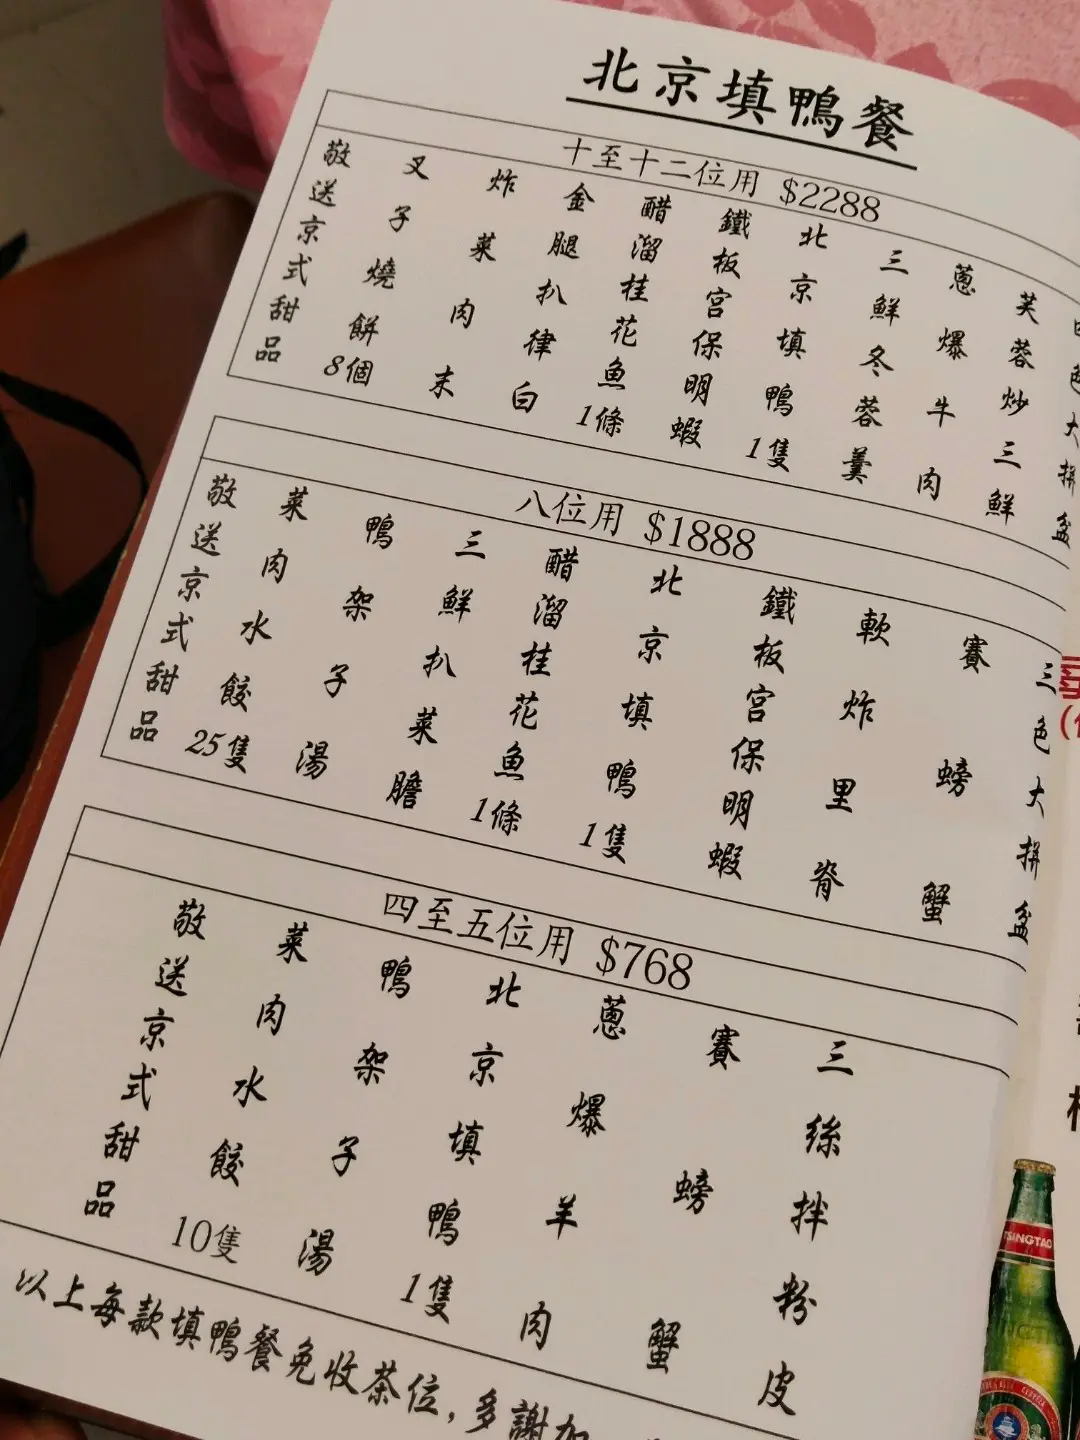 北京填鴨餐
十至十二位用 $2288
四色大拼盆
芙蓉炒三鮮
蔥爆牛肉
三鮮冬蓉羹
北京填鴨1隻
鐵板宮保明蝦
醋溜桂花魚1條
金腿扒律白
炸菜肉末
叉子燒餅8個
敬送京式甜品
八位用 $1888
三色大拼盆
賽螃蟹
軟炸里脊
鐵板宮保明蝦
北京填鴨1隻
醋溜桂花魚1條
三鮮扒菜膽
鴨架子湯
菜肉水餃25隻
敬送京式甜品
四至五位用 $768
三絲拌粉皮
賽螃蟹
蔥爆羊肉
北京填鴨1隻
鴨架子湯
菜肉水餃10隻
敬送京式甜品
以上每款填鴨餐免收茶位，多謝加
TSINGTAO